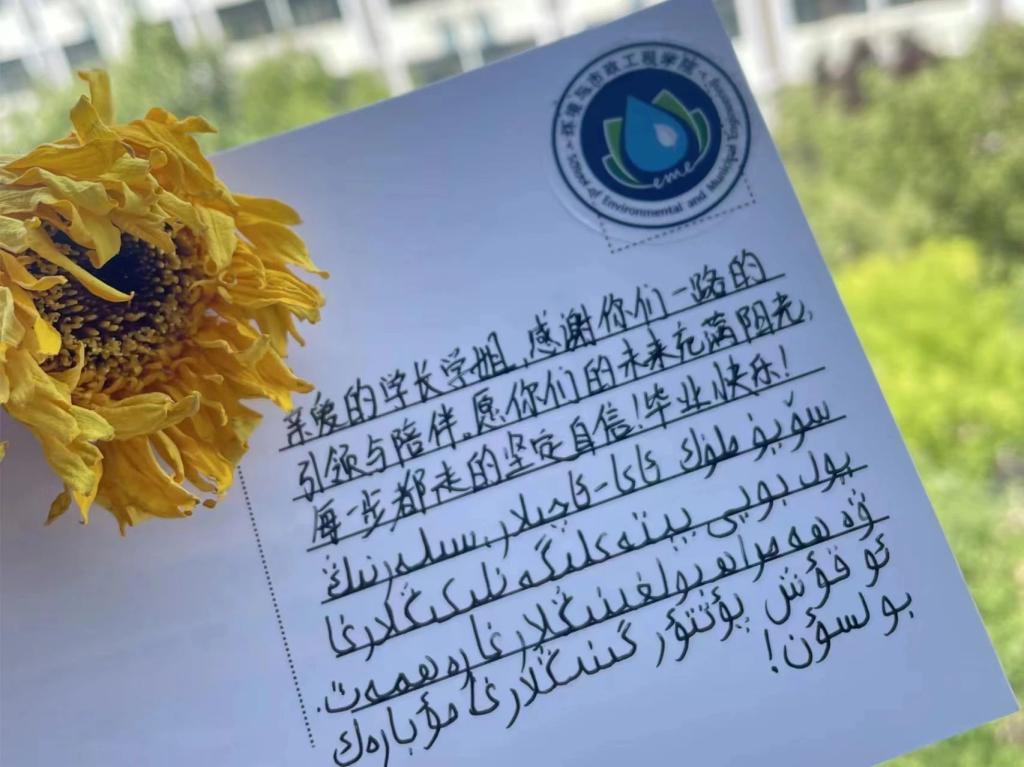 环境与市政工程学院
School of Environmental and Municipal Engineering
eme
亲爱的学长学姐，感谢你们一路的
引领与陪伴，愿你们的未来充满阳光，
每一步都走的坚定自信！毕业快乐！
سۆيۈملۈك ئاكا-ئاچىلار، سىلەرنىڭ
يول بويى يېتەكلىگەنلىكىڭلارغا
ۋە ھەمراھ بولغىنىڭلارغا رەھمەت.
ئوقۇش پۈتتۈرگىنىڭلارغا مۇبارەك
بولسۇن!